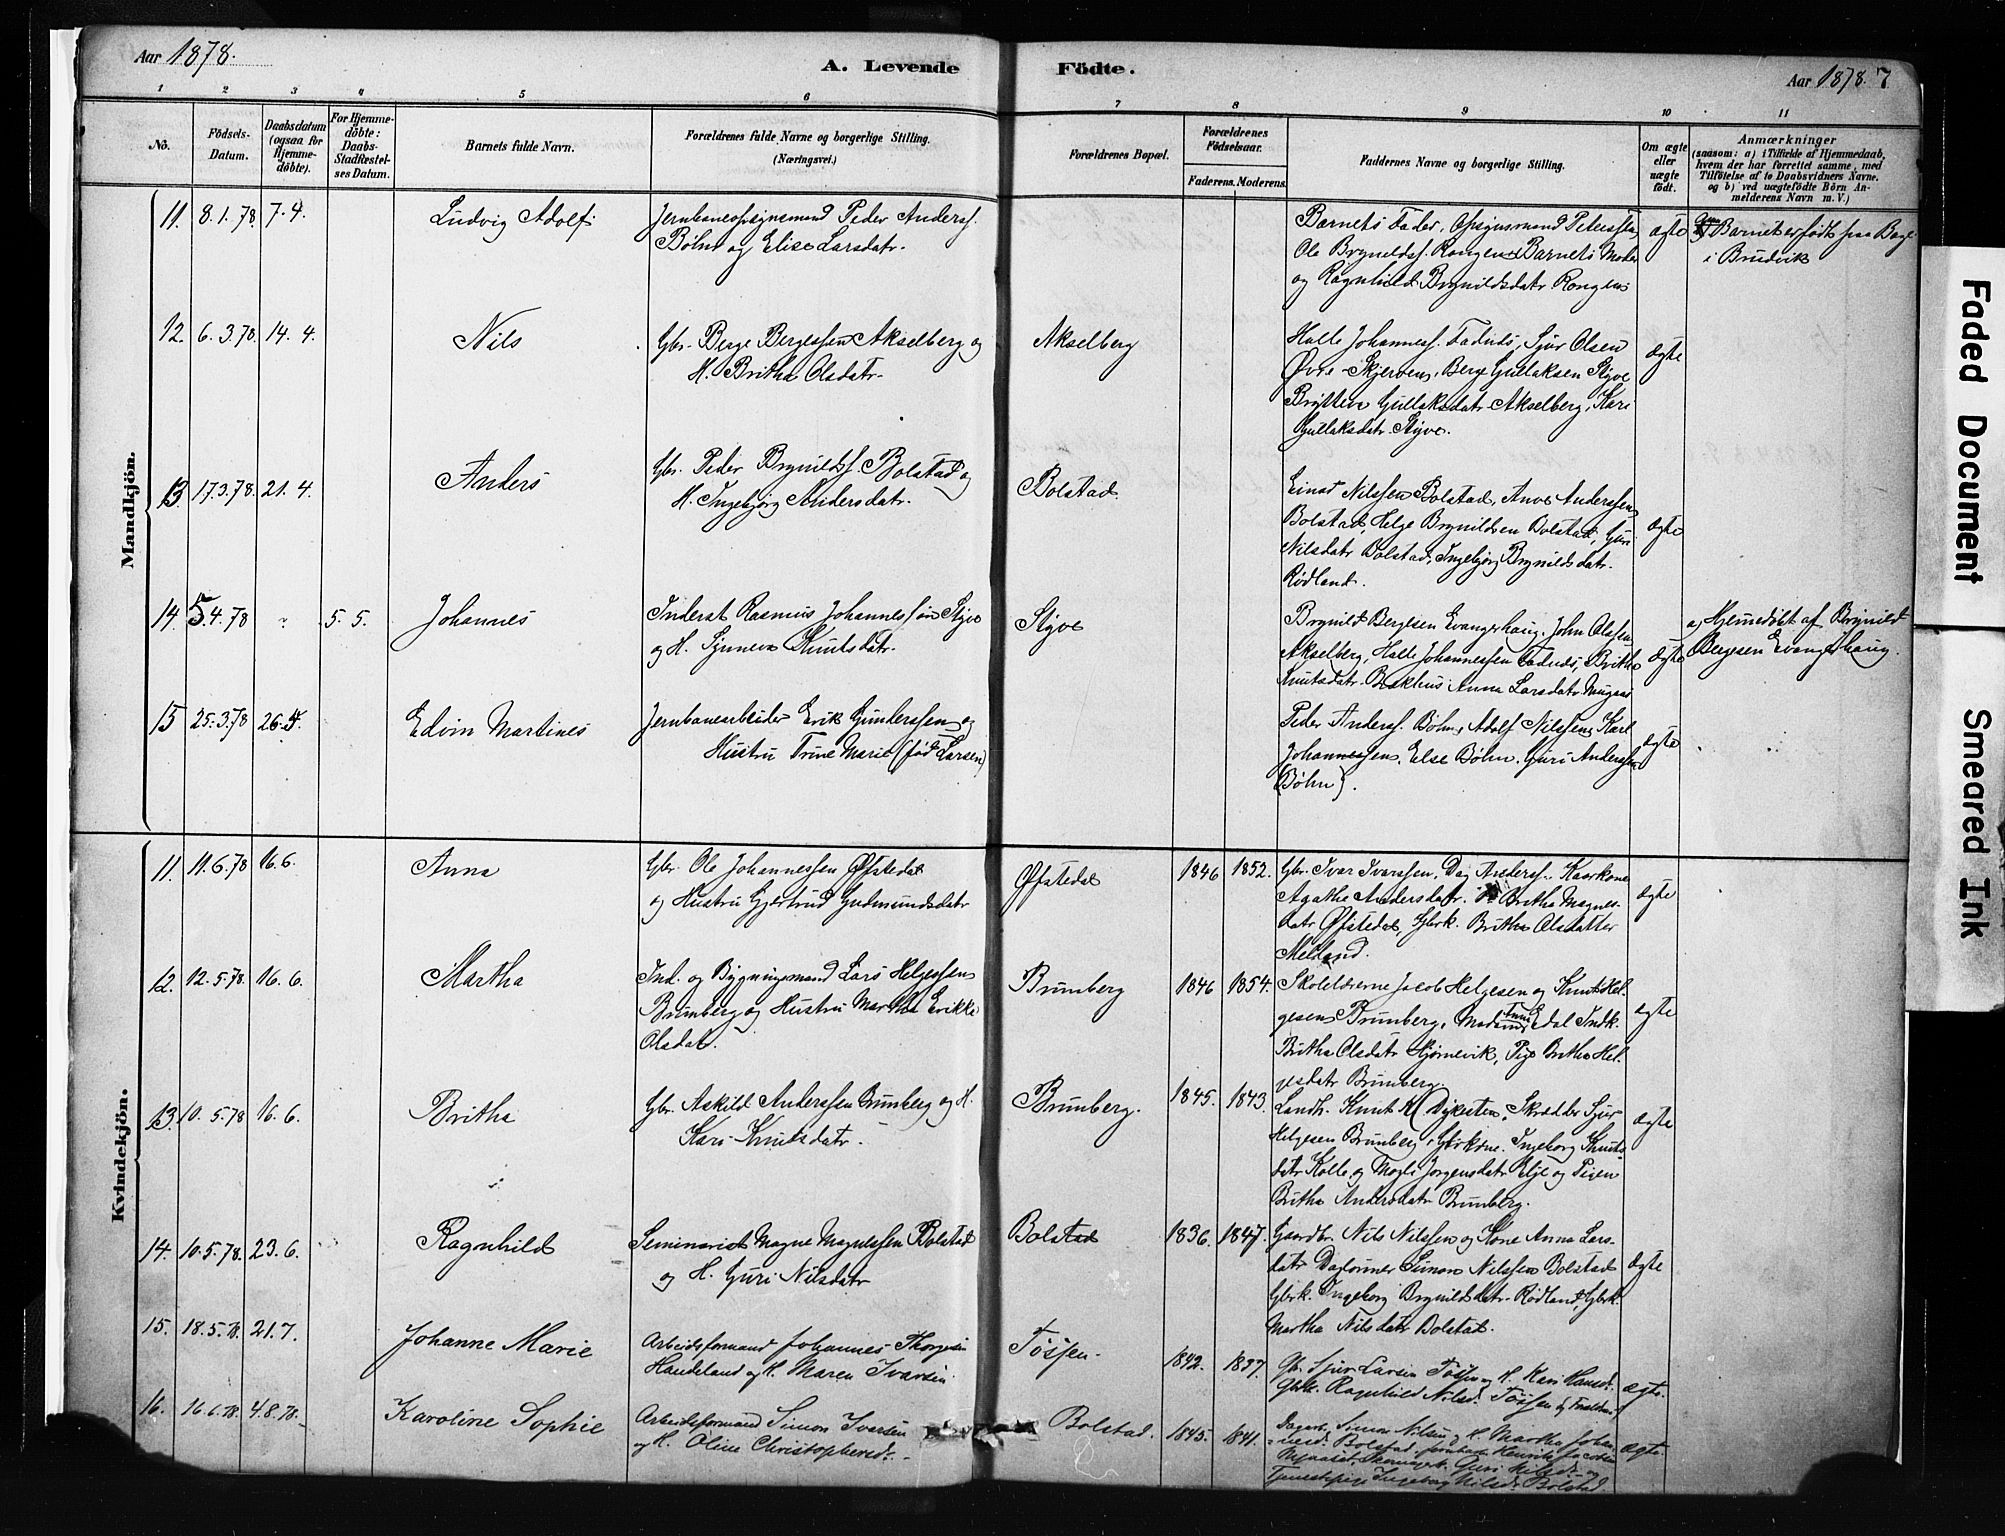 Aar 1878.
A. Levende Födte.
Aar 1878. 7
1 2 3 4 5 6 7 8 9 10 11
No.
Födsels-Datum.
Daabsdatum (ogsaa for Hjemme-döbte).
For Hjemme-döbte: Daabs-Stadfæstel-ses Datum.
Barnets fulde Navn.
Forældrenes fulde Navne og borgerlige Stilling.
(Næringsvei.)
Forældrenes Bopæl.
Forældrenes Födselsaar.
Faderens. Moderens.
Faddernes Navne og borgerlige Stilling.
Om ægte eller uægte födt.
Anmærkninger
(saasom: a) i Tilfælde af Hjemmedaab,
hvem der har forrettet samme, med
Tilföielse af to Daabsvidners Navne,
og b) ved uægtefödte Börn An-
melderens Navn m. V.)
Mandkjön.
11. 8.1.78. 7.4. Ludvig Adolf
Jernbaneopsynsmand Peder Anderss.
Bøhn og Elise Larsdatr.
Barnets Fader, Opsynsmand
Ole Brynildss. Rongen Barnets Moder
og Ragnhild Brynildsdatr Rongen
ægte
Barnet er født paa
i Brudvik
12. 6.3.78. 14.4. Nils
Gbr. Berge Bergessen Akselberg og
H. Britha Olsdatr.
Akselberg
Halle Johanness. Fadnæs, Sjur Olsen
Øvre-Skjerven, Berge Gullaksen Styve
Gullaksdatr Akselberg, Kari
Gullaksdatr. Styve.
ægte
13. 17.3.78. 21.4. Anders
Gbr. Peder Brynildss. Bolstad og
H. Ingebjørg Andersdatr.
Bolstad
Einar Nilssen Bolstad, Anve Anderssen
Bolstad, Helge Brynildsen Bolstad, Guri
Nilsdatr Bolstad, Ingebjørg Brynildsdatr.
Rødland.
ægte
14. 5.4.78 " 5.5. Johannes
Inderst Rasmus Johannessøn Styve
og H. Synneva Knutsdatr.
Styve
Brynild Bergesen Evangerhaug, John Olsen
Akselberg, Halle Johannessen Fadnæs, Britha
Knutsdatr. Bakhus Anna Larsdatr
ægte
a) Hjemmedøbt af Brynild
Bergesen Evangerhaug.
15 25.3.78 26.5. Edvin Martines
Jernbanearbeider Erik Gunderssen og
Hustru Trine Marie (født Larsen)
Peder Anderss. Bøhn, Adolf Nilssen, Karl
Johannessen, Else Bøhn, Guri Anderssen
(Bøhn).
ægte
Kvindekjön.
11. 11.6.78 16.6. Anna
Gbr. Ole Johannessen Øfstedal
og Hustru Gjertrud Gudmundsdatr
Øfstedal
1846 1852.
Gbr. Ivar Ivarssen, Dag Anderss. Kaarkone
Agatha Andersdatr. Britha Magnes-
datr Øfstedal, Gbrk. Britha Olsdatter
Meldand.
ægte
12. 12.5.78 16.6. Martha
Ind. og Bygningsmand Lars Helgessen
Brunberg og Hustru Martha Erikke
Olsdat.
Brunberg
1846 1854.
Skolelærerne Jacob Helgesen og Knut Hel-
gesen Brunberg, Madam Edal Indk.
Britha Olsdatr Hjørnevik, Pige Britha Hel-
gesdatr Brunberg.
ægte
13. 10.5.78 16.6. Britha
Gbr. Askild Anderssen Brunberg og H.
Kari Knutsdatr.
Brunberg.
1845. 1843.
Landh. Knut K. Dykesten, Skrædder Sjur
Helgesen Brunberg, Gbrkone. Ingeborg Knuts-
datr Kolle og Magli Jørgensdatr Elje og Pigen
Britha Andersdatr Brunberg.
ægte
14. 10.5.78. 23.6. Ragnhild
Seminarist Magne Magnessen Bolstad
og H. Guri Nilsdatr
Bolstad
1836. 1847.
Gaardbr. Nils Nilssen og Kone Anna Lars-
datr Daglønner Simon Nilssen Bolstad
Gbrk. Ingeborg Brynildsdatr. Rødland, Gbrk.
Martha Nilsdatr Bolstad.
ægte
15. 18.5.78. 21.7. Johanne Marie
Arbeidsformand Johannes Thorgesen
Handeland og H. Maren Ivarsen
Tøssen.
1842. 1837.
Gbr. Sjur Larsen Tøssen og H. Kari Hansd.
Gbrk. Ragnhild Nilsd. Tøssen
ægte
16. 16.6.78. 4.8.78. Karoline Sophie
Arbeidsformand Simon Ivarsen
og H. Oline Christophersd.
Bolstad.
1845. 1841.
Dagarb. Simon Nilsen og H. Martha Johan-
nesd. Bolstad, Henrik Jacobsen
Guri Nilsd. og
Tjenestepige Ingeborg Nilsd. Bolstad
ægte
Faded Document
Smeared Ink